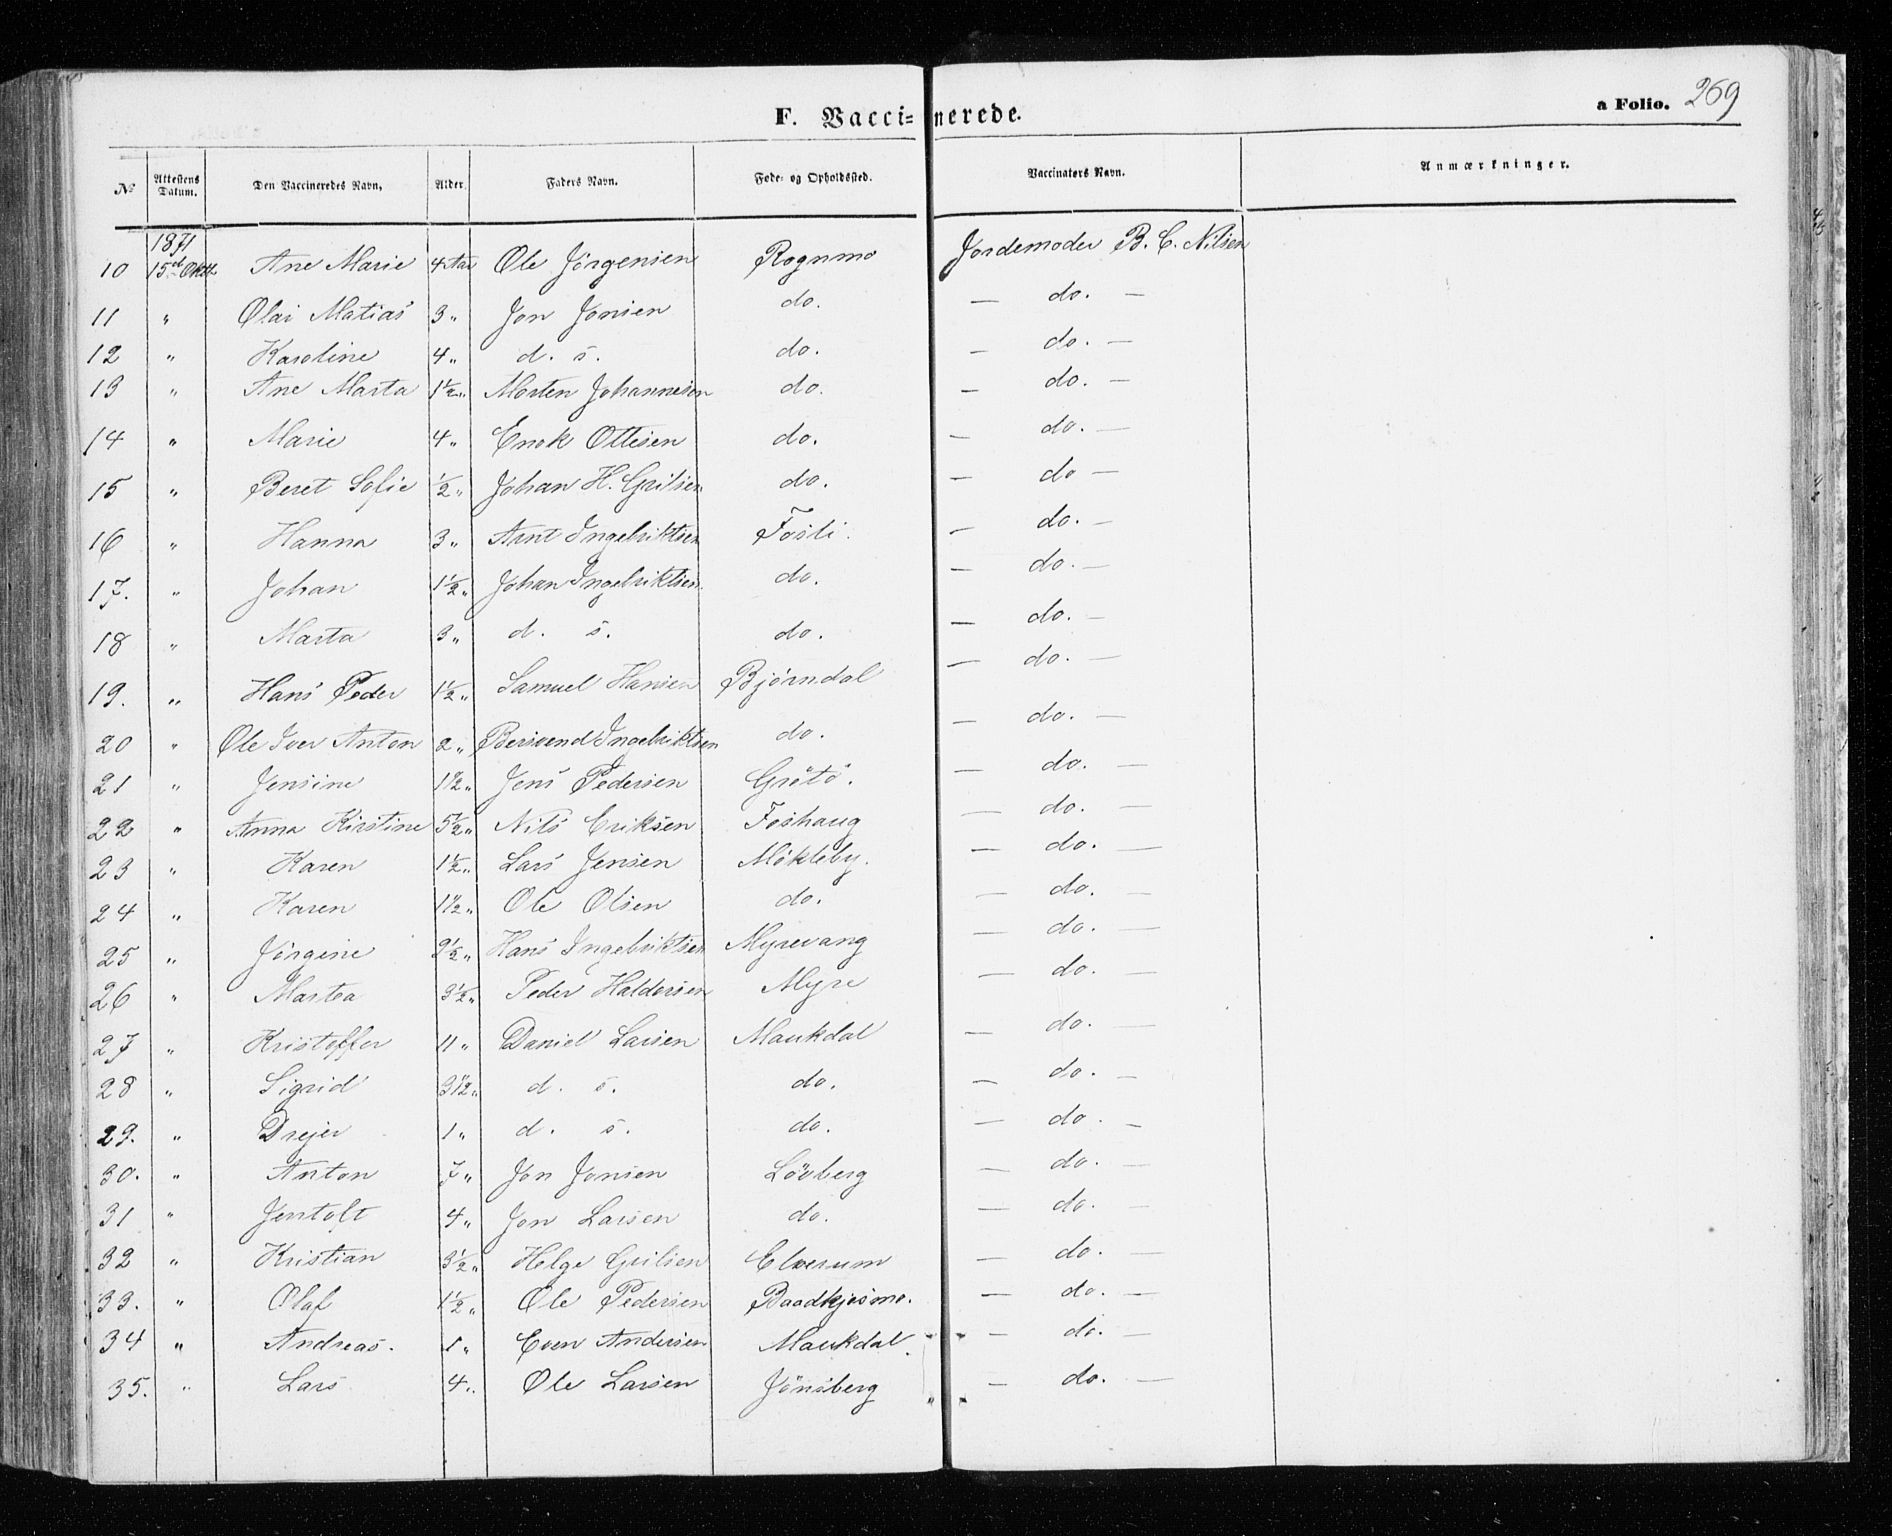 F. Vaccinerede. a Folio. 269
№ Attestens Datum. Den Vaccineredes Navn, Alder. Faders Navn. Føde- og Opholdssted. Vaccinators Navn. Anmærkninger.
1871
10 15de Oktbr Ane Marie 4 Aar Ole Jörgensen Rognmo Jordemoder B. C. Nilsen
11 " Olai Matias 3 " Jon Jonsen do. — do. —
12 " Karoline 4 " d. s. do. — do. —
13 " Ane Marta 1½ " Morten Johannesen do. — do. —
14 " Marie 4 " Enok Ottesen do. — do. —
15 " Beret Sofie ½ " Johan H. Grilsen do. — do —
16 " Hanna 3 " Arnt Ingebriktsen Fosli. — do. —
17. " Johan 1½ " Johan Ingebriktsen. do. — do. —
18 " Marta 3 " d. s. do. — do. —
19. " Hans Peder 1½ " Samuel Hansen Bjørndal — do. —
20 " Ole Iver Anton 2 " Bersvend Ingebriktsen do. — do. —
21 " Jensine 1½ " Jens Pedersen Grötö. — do. —
22 " Anna Kirstine 5½ " Nils Eriksen Foshaug — do. —
23 " Karen 1½ " Lars Jensen Møkleby. — do. —
24 " Karen 1½ " Ole Olsen do. — do. —
25 " Jörgine 2½ " Hans Ingebriktsen Myrevang — do. —
26 " Martea 3½ " Peder Haldorsen Myre — do. —
27 " Kristoffer 11 " Daniel Larsen Maukdal — do. —
28 " Sigrid 3½ " d. s. do. — do. —
29. " Drejer 1 " d. s. do. — do. —
30. " Anton 7 " Jon Jonsen Lövberg — do. —
31 " Jentoft 4 " Jon Larsen do. — do. —
32 " Kristian 3½ " Helge Grilsen Elverum — do. —
33. " Olaf 1½ " Ole Pedersen Baadkjosmo. — do. —
34 " Andreas. 1 " Even Andersen Maukdal. — do. —
35. " Lars 4 " Ole Larsen Jönsberg — do. —